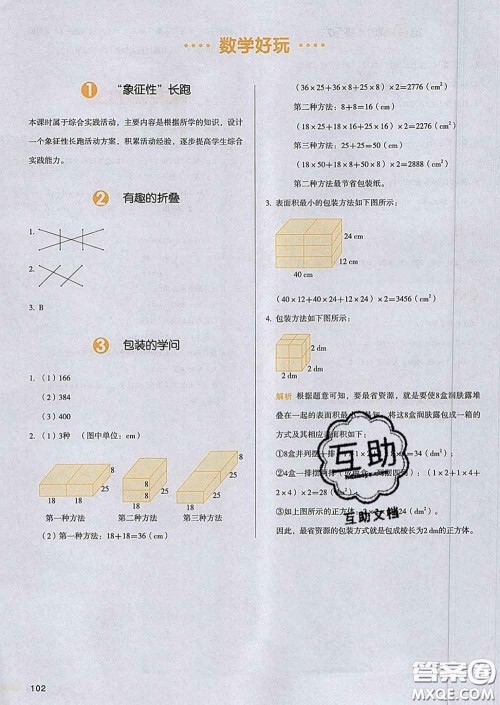 数学好玩
1 “象征性”长跑
本课时属于综合实践活动，主要内容是根据所学的知识，设计
一个象征性长跑活动方案，积累活动经验，逐步提高学生综合
实践能力。
2 有趣的折叠
1.
2.
3. B
3 包装的学问
1. (1) 166
(2) 384
(3) 400
2. (1) 3种 (图中单位：cm)
8 25 18 18
8 8 25 18
8 25 25 18
第一种方法 第二种方法 第三种方法
(2) 第一种方法：18+18=36 (cm)
(36×25+36×8+25×8) ×2=2776 (cm²)
第二种方法：8+8=16 (cm)
(18×25+18×16+25×16) ×2=2276 (cm²)
第三种方法：25+25=50 (cm)
(18×50+18×8+50×8) ×2=2888 (cm²)
第二种方法最节省包装纸。
3. 表面积最小的包装方法如下图所示：
24 cm
12 cm
40 cm
(40×12+40×24+12×24) ×2=3456 (cm²)
4. 包装方法如下图所示：
2 dm
2 dm
2 dm
解析 根据题意可知，要最省资源，就是要使8盒润肤露堆
叠在一起的表面积最小。 将这8盒润肤露包成一箱的
方式及其相应表面积如下：
①8盒并列摆一排
②4盒一排摆 (1×2+1×4+
2×4) ×2=28 (dm²)
③如上图所示的正方体： =24 (dm²)
因此，最省资源的包装方式就是包成棱长为2 dm的正方体。
互助
互助文档
102
答案圈
MXQE.COM